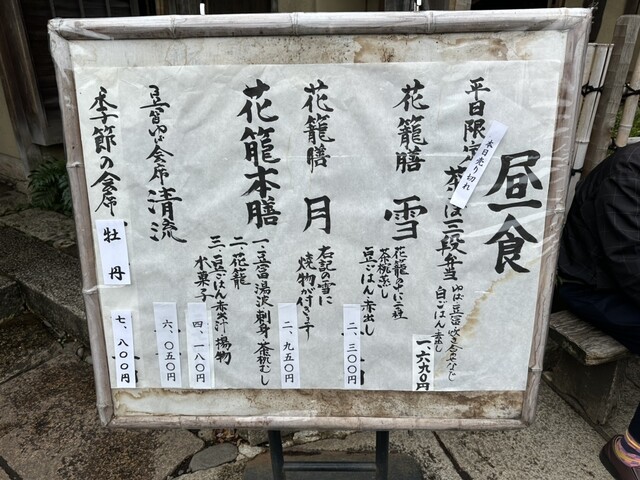 昼食
平日限定
本日売り切れ
茶そば三段弁当
ゆば豆冨炊き合せなど
白ごはん赤出し
一、六九〇円
花籠膳 雪
花籠
茶碗蒸し
豆ごはん・赤出し
二、三〇〇円
花籠膳 月
右記の雪に
焼物が付きます
二、九五〇円
花籠本膳
一、豆冨湯波刺身・茶碗むし
二、花籠
三、豆ごはん・赤出汁・揚物
水菓子
四、一八〇円
豆冨ゆば会席 清流
六、〇五〇円
季節の会席 牡丹
七、八〇〇円